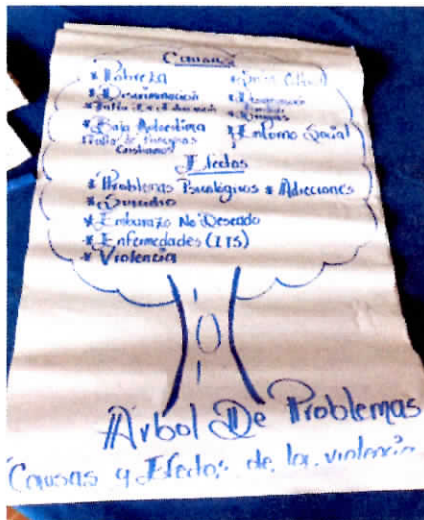 Causas
* Pobreza
* Discriminación
* Drogas
* Baja Autoestima * Entorno Social
Falta de Principios
Cristianos
Efectos
* Problemas Psicológicos * Adicciones
* Suicidio
* Embarazo No Deseado
* Enfermedades (ITS)
* Violencia
Árbol De Problemas
Causas y Efectos de la violencia